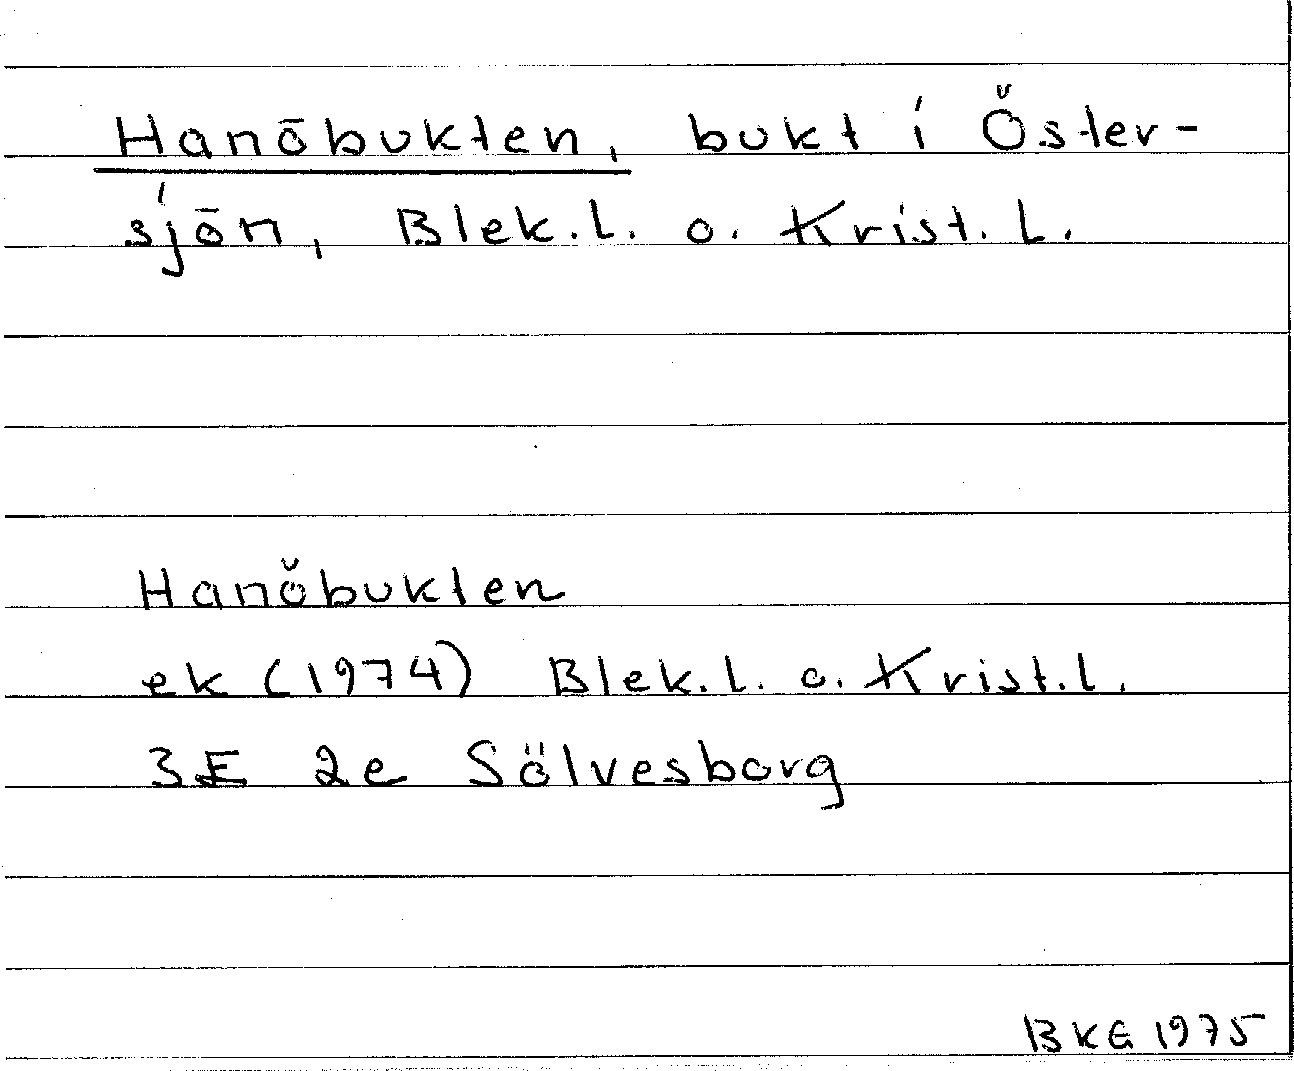 Hanöbukten, bukt i Öster-
sjön, Blek.l. o. Krist. L.
Hanöbukten
ek (1974) Blek.l. o. Krist.l.
3E 2e Sölvesborg
BKG 1975